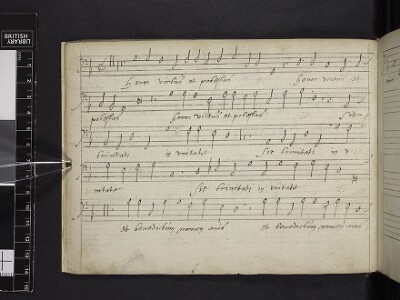 honor virtus et potestas honor virtus et
potestas honor virtus et potestas Sit
trinitati in unitate Sit trinitati in v
nitate Sit trinitati in unitate
et benedictum nomen eius et benedictum nomen eius